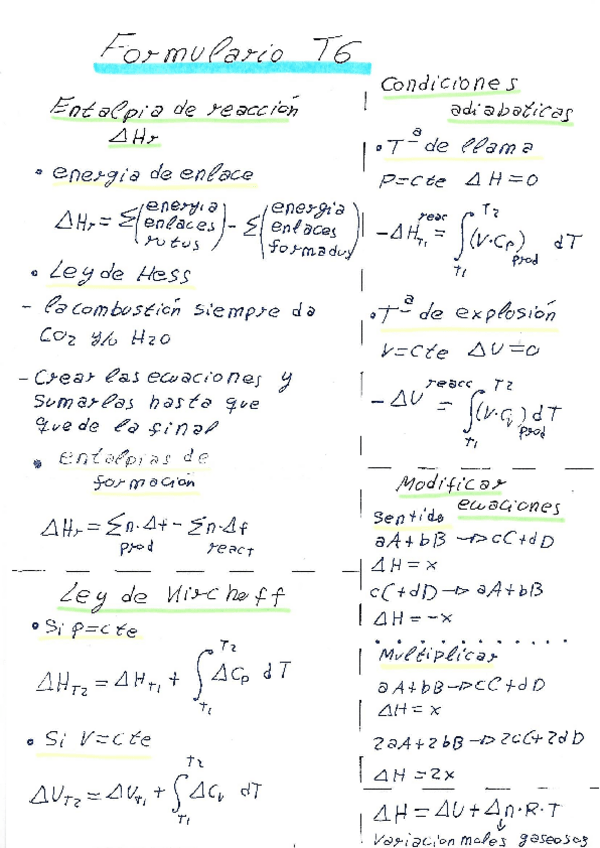 Formulario T6
Entalpia de reacción
ΔHr
• energia de enlace
ΔHr = Σ(energia enlaces rotus) - Σ(energia enlaces formados)
• Ley de Hess
- la combustión siempre da
CO2 y/o H2O
- Crear las ecuaciones y
sumarlas hasta que
quede la final
• entalpias de
formacion
ΔHr = Σn·Δf - Σn·Δf
prod react
Ley de Kircheff
• Si p=cte
ΔH_T2 = ΔH_T1 + ∫_T1^T2 ΔCp dT
• Si V=cte
ΔU_T2 = ΔU_T1 + ∫_T1^T2 ΔCv dT
Condiciones
adiabaticas
• Tª de llama
P=cte ΔH=0
-ΔH_T1^reac = ∫_T1^T2 (V·Cp)prod dT
• Tª de explosión
V=cte ΔU=0
-ΔU^reacc = ∫_T1^T2 (V·Cv)prod dT
Modificar
ecuaciones
Sentido
aA+bB → cC+dD
ΔH = x
cC+dD → aA+bB
ΔH = -x
Multiplicar
aA+bB → cC+dD
ΔH = x
2aA+2bB → 2cC+2dD
ΔH = 2x
ΔH = ΔU + Δn·R·T
↓
Variacion moles gaseosos